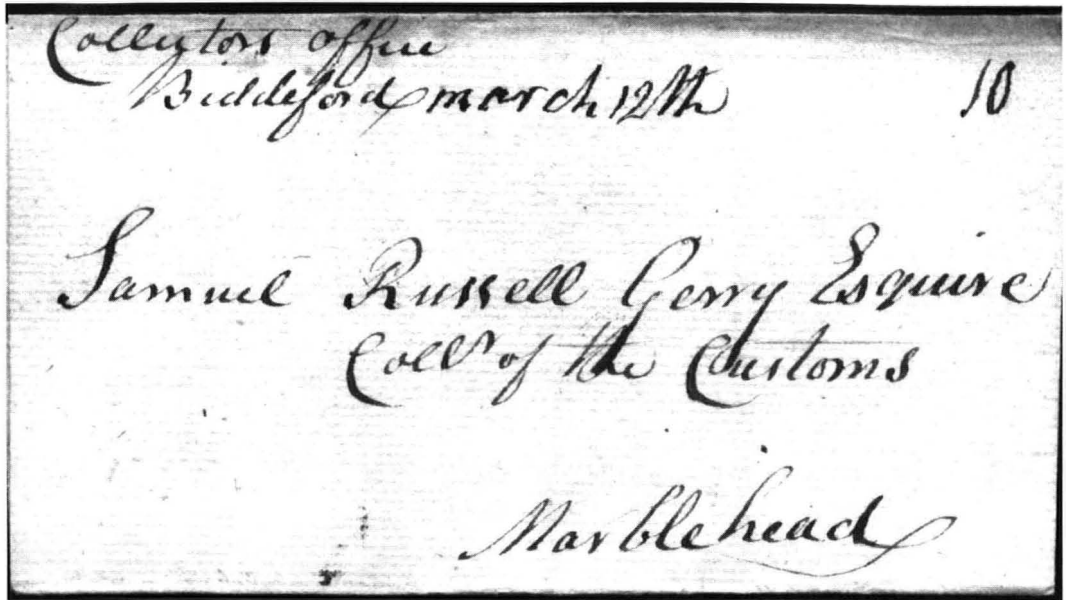 Collectors office
Biddeford march 12th 10
Samuel Russell Gerry Esquire
Collr of the Customs
Marblehead